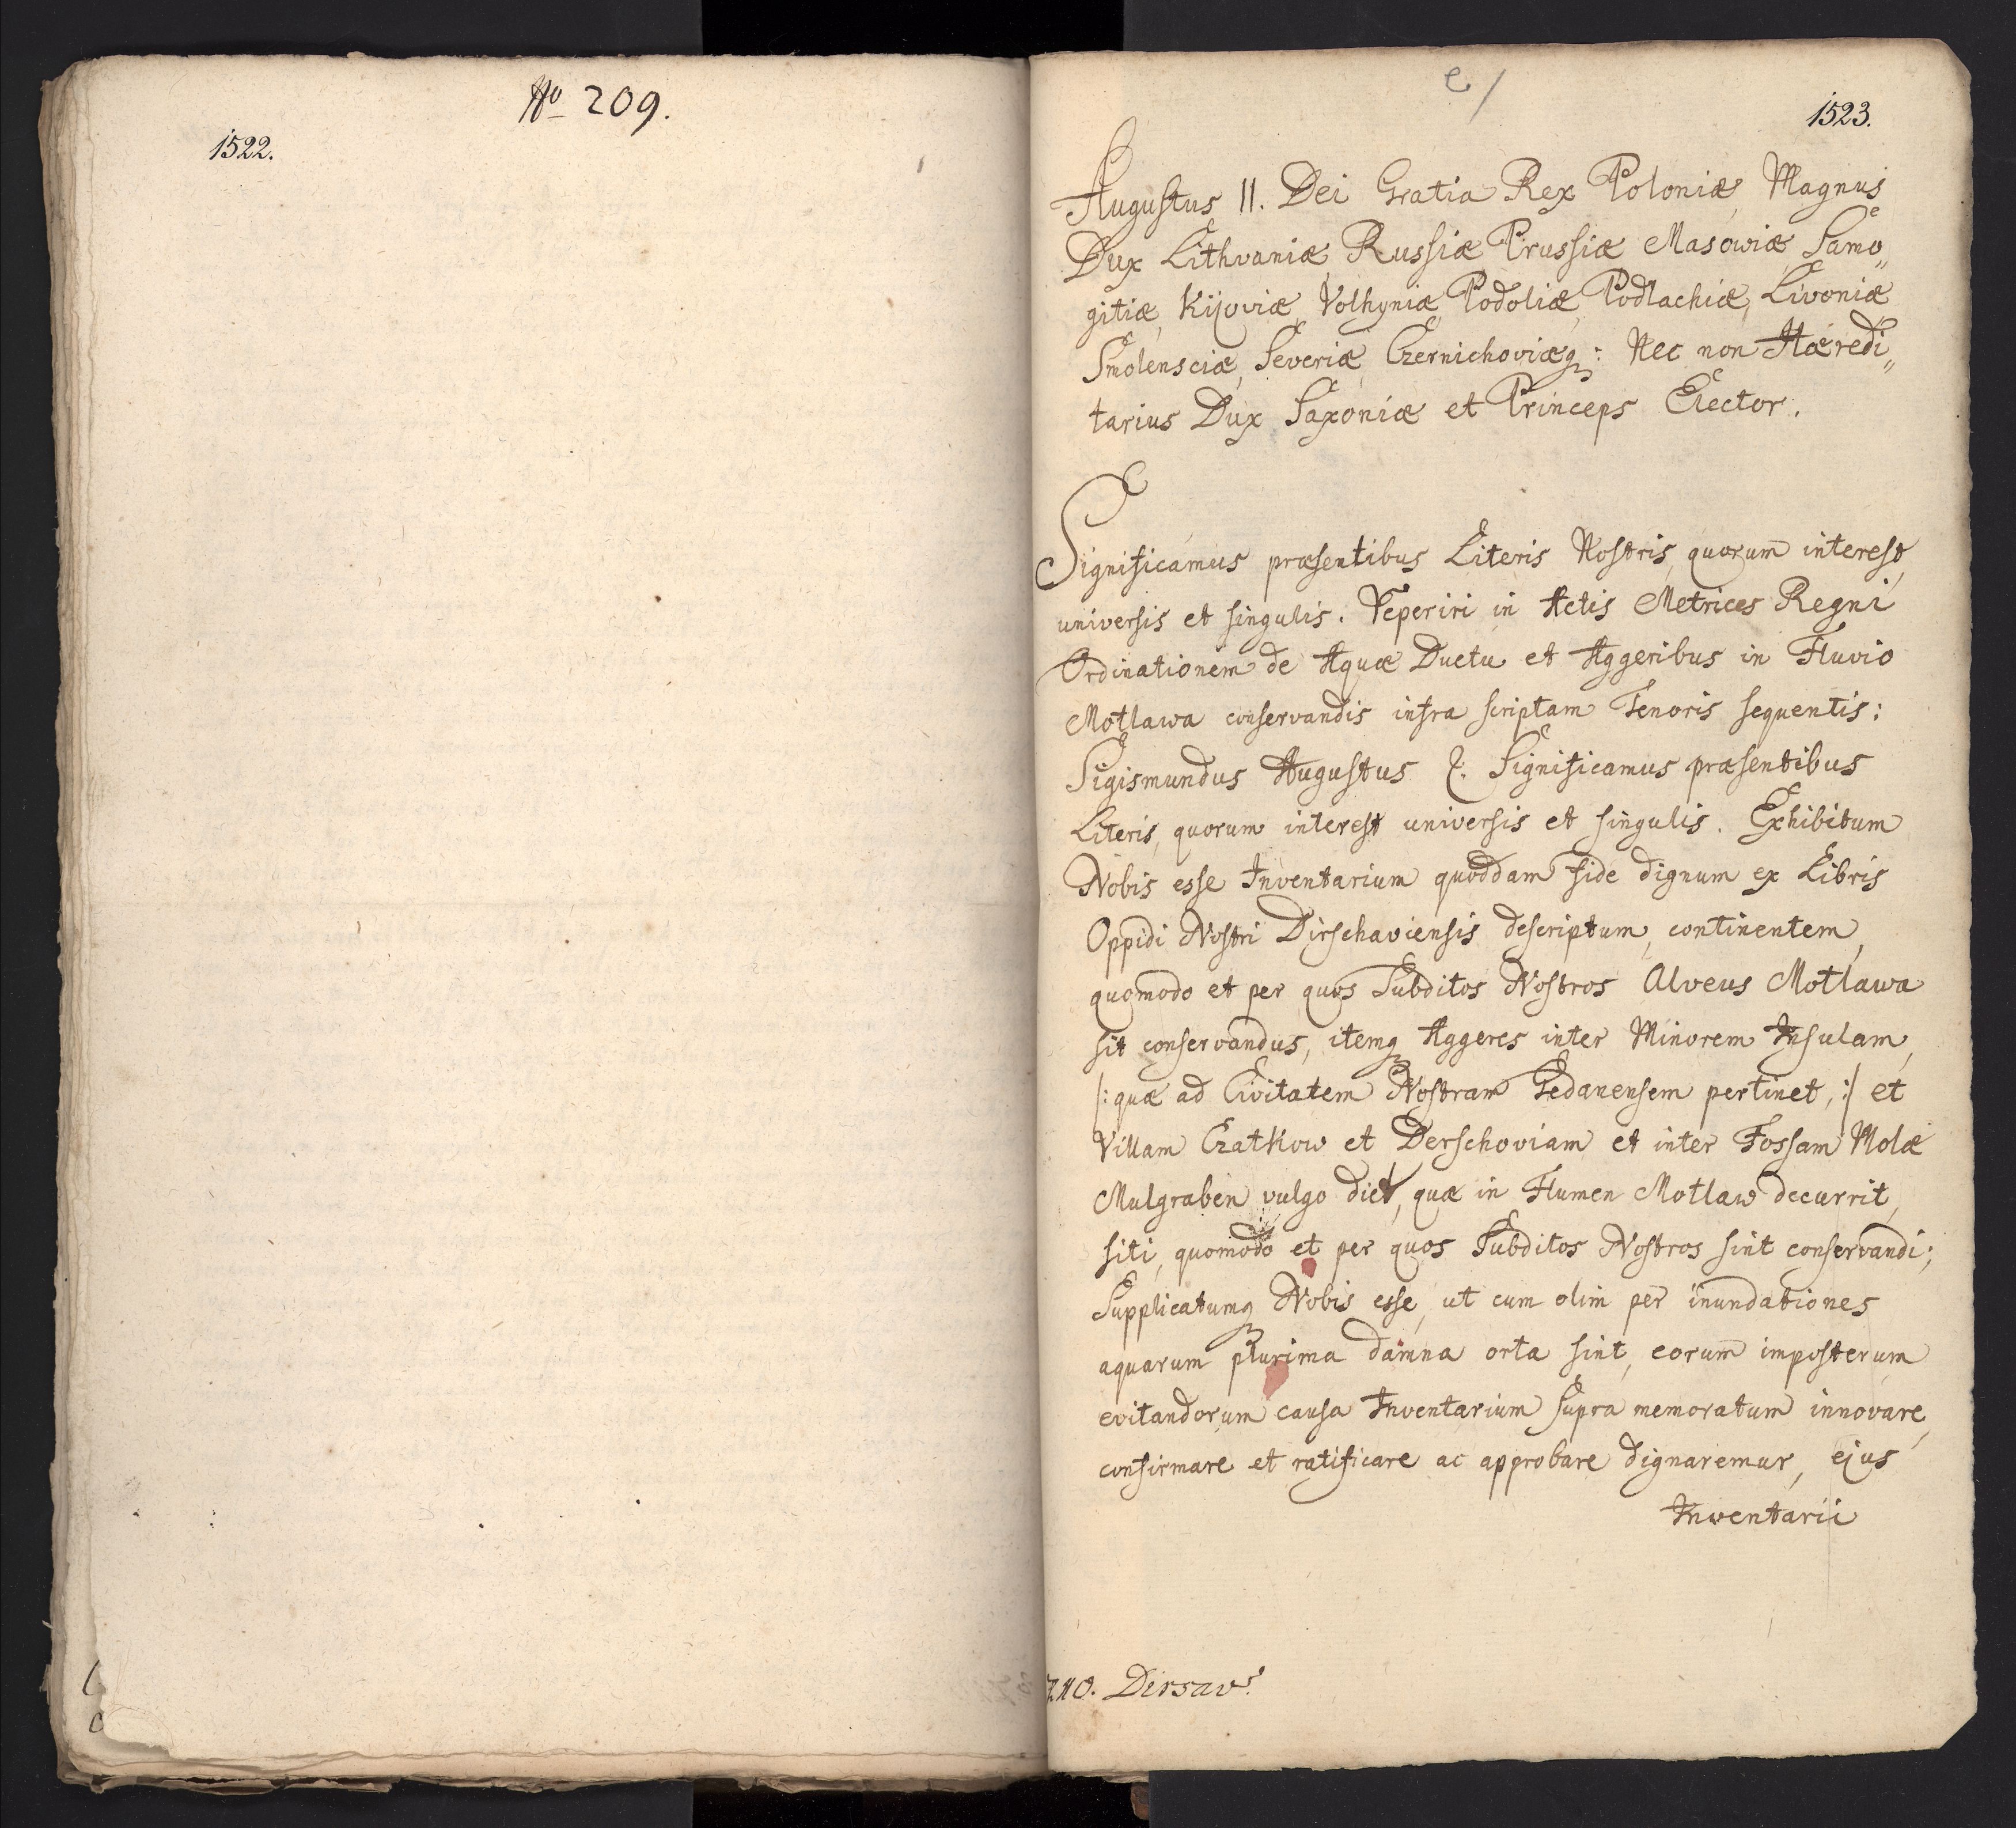 No 209.
1522.
1523.
Augustus II. Dei Gratia Rex Poloniæ, Magnus
Dux Lithvaniæ Russiæ Prussiæ Masoviæ, Samo„
gitiæ, Kijoviæ, Volhyniæ, Podoliæ, Podlachiæ, Livoniæ
Smolensciæ, Severiæ, Czernichoviæq: Nec non Hæredi„
tarius Dux Saxoniæ et Princeps Elector.
Significamus præsentibus Literis Nostris, quorum interest,
universis et singulis. Reperiri in Actis Metrices Regni
Ordinationem de Aquæ Ductu et Aggeribus in Fluvio
Motlawa conservandis infra scriptam Tenoris sequentis:
Sigismundus Augustus &. Significamus præsentibus
Literis, quorum interest universis et singulis. Exhibitum
Nobis esse Inventarium quoddam fide dignum ex Libris
Oppidi Nostri Dirschaviensis descriptum, continentem,
quomodo et per quos Subditos Nostros Alveus Motlawa
sit conservandus, itemq Aggeres inter Minorem Insulam,
/: quæ ad Civitatem Nostram Gedanensem pertinet, :/ et
Villam Czatkow et Derschoviam et inter Fossam Molæ
Mulgraben vulgo dict, quæ in Flumen Motlaw decurrit,
siti, quomodo et per quos Subditos Nostros sint conservandi;
Supplicatumq Nobis esse, ut cum olim per inundationes
aquarum plurima damna orta sint, eorum imposterum
evitandorum causa Inventarium supra memoratum innovare,
confirmare et ratificare ac approbare dignaremur, ejus
Inventarii
Dirsav.